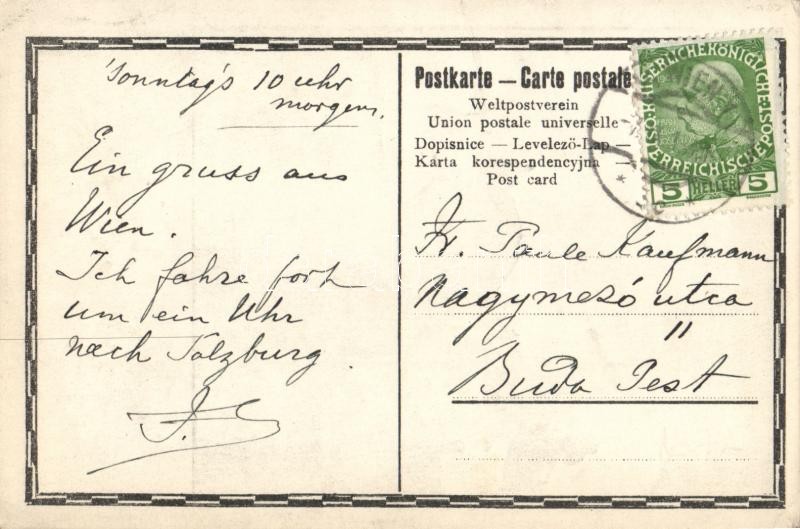 Sonntag's 10 uhr
morgens.
Ein gruss aus
Wien.
Ich fahre fort
um ein Uhr
nach Salzburg.
Postkarte — Carte postale
Weltpostverein
Union postale universelle
Dopisnice — Levelező-Lap —
Karta korespondencyjna —
Post card
KAISERLICHE KÖNIGLICHE
ÖSTERREICHISCHE POST
5 HELLER 5
WIEN
Fr. Paule Kaufmann
Nagymező utca
11
Buda Pest